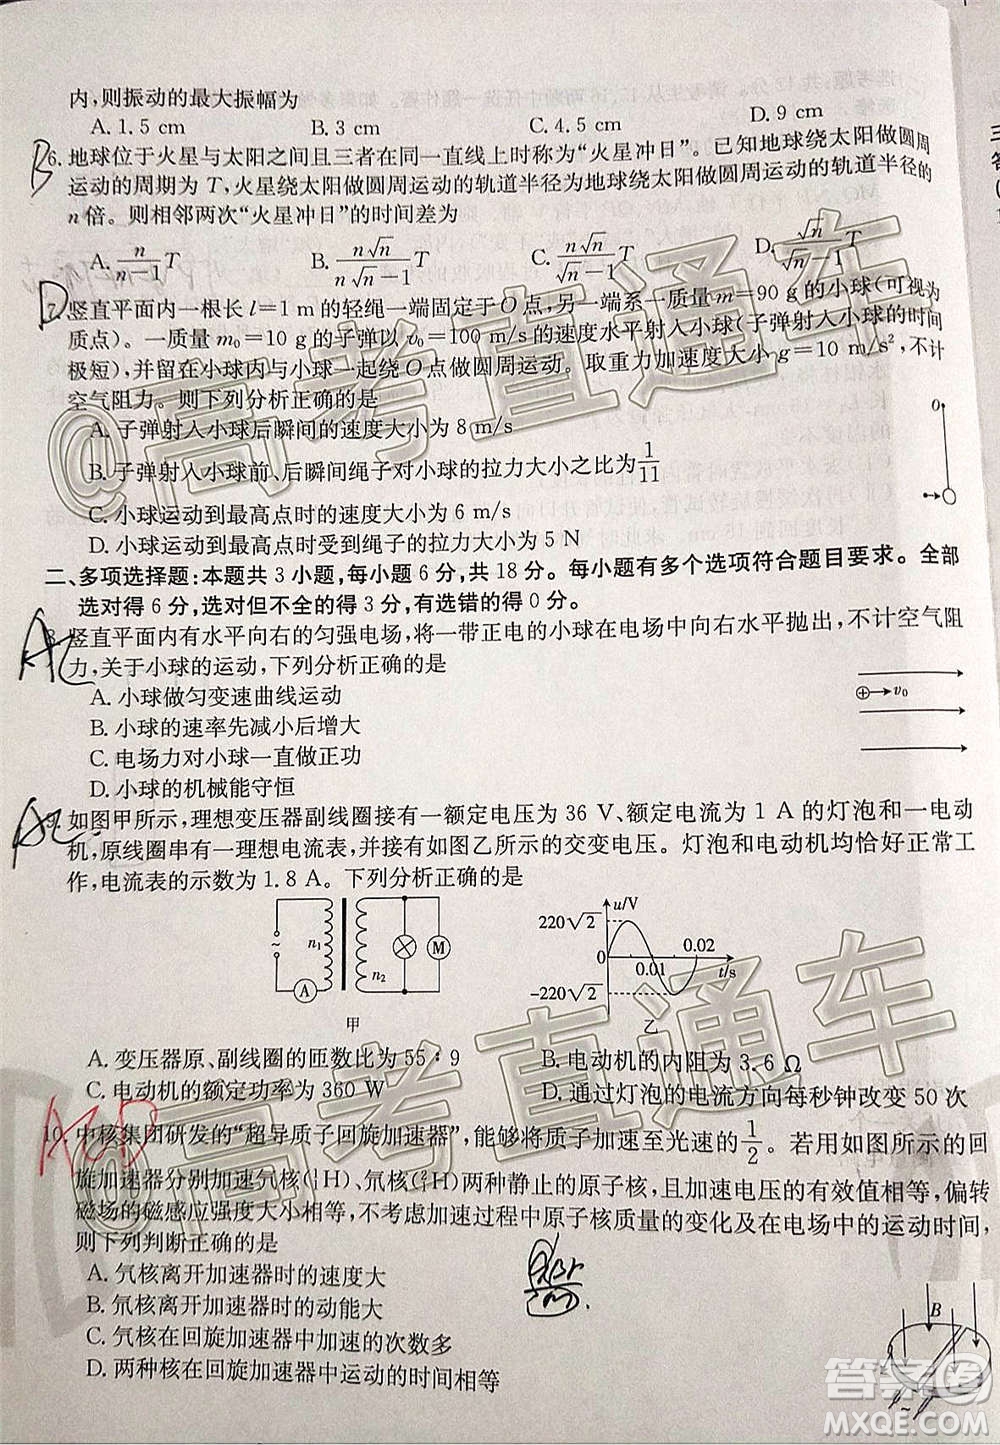 内,则振动的最大振幅为
A. 1.5 cm B. 3 cm C. 4.5 cm D. 9 cm
B
6. 地球位于火星与太阳之间且三者在同一直线上时称为“火星冲日”。已知地球绕太阳做圆周
运动的周期为 T,火星绕太阳做圆周运动的轨道半径为地球绕太阳做圆周运动的轨道半径的
n 倍。则相邻两次“火星冲日”的时间差为
A. \frac{n}{n-1}T B. \frac{n\sqrt{n}}{n\sqrt{n}-1}T C. \frac{n\sqrt{n}}{\sqrt{n}-1}T D. \frac{\sqrt{n}}{\sqrt{n}-1}T
D
7. 竖直平面内一根长 l=1 m 的轻绳一端固定于 O 点,另一端系一质量 m=90 g 的小球(可视为
质点)。一质量 m₀=10 g 的子弹以 v₀=100 m/s 的速度水平射入小球(子弹射入小球的时间
极短),并留在小球内与小球一起绕 O 点做圆周运动。取重力加速度大小 g=10 m/s²,不计
空气阻力。则下列分析正确的是
A. 子弹射入小球后瞬间的速度大小为 8 m/s
B. 子弹射入小球前、后瞬间绳子对小球的拉力大小之比为\frac{1}{11}
C. 小球运动到最高点时的速度大小为 6 m/s
D. 小球运动到最高点时受到绳子的拉力大小为 5 N
0
二、多项选择题:本题共 3 小题,每小题 6 分,共 18 分。每小题有多个选项符合题目要求。全部
选对得 6 分,选对但不全的得 3 分,有选错的得 0 分。
AC
8. 竖直平面内有水平向右的匀强电场,将一带正电的小球在电场中向右水平抛出,不计空气阻
力,关于小球的运动,下列分析正确的是
A. 小球做匀变速曲线运动
B. 小球的速率先减小后增大
C. 电场力对小球一直做正功
D. 小球的机械能守恒
⊕→v₀
AC
9. 如图甲所示,理想变压器副线圈接有一额定电压为 36 V、额定电流为 1 A 的灯泡和一电动
机,原线圈串有一理想电流表,并接有如图乙所示的交变电压。灯泡和电动机均恰好正常工
作,电流表的示数为 1.8 A。下列分析正确的是
~ n₁ n₂ A M
甲
u/V
220√2
0 0.01 0.02 t/s
-220√2
乙
A. 变压器原、副线圈的匝数比为 55∶9 B. 电动机的内阻为 3.6 Ω
C. 电动机的额定功率为 360 W D. 通过灯泡的电流方向每秒钟改变 50 次
ACD
10. 中核集团研发的“超导质子回旋加速器”,能够将质子加速至光速的\frac{1}{2}。若用如图所示的回
旋加速器分别加速氕核(¹₁H)、氘核(²₁H)两种静止的原子核,且加速电压的有效值相等,偏转
磁场的磁感应强度大小相等,不考虑加速过程中原子核质量的变化及在电场中的运动时间,
则下列判断正确的是
A. 氕核离开加速器时的速度大
B. 氘核离开加速器时的动能大
C. 氕核在回旋加速器中加速的次数多
D. 两种核在回旋加速器中运动的时间相等
B
~
@高考直通车
@高考直通车
答案圈
MXQE.COM